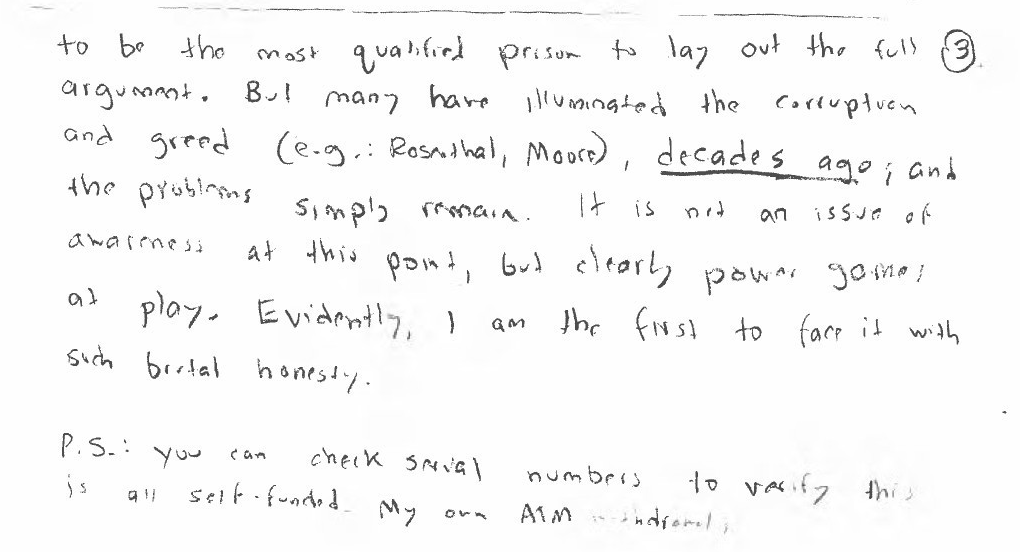 to be the most qualified person to lay out the full ③
argument. But many have illuminated the corruption
and greed (e.g.: Rosenthal, Moore), decades ago; and
the problems simply remain. It is not an issue of
awareness at this point, but clearly power games
at play. Evidently, I am the first to face it with
such brutal honesty.
P.S.: you can check serial numbers to verify this
is all self-funded. My own ATM withdrawals